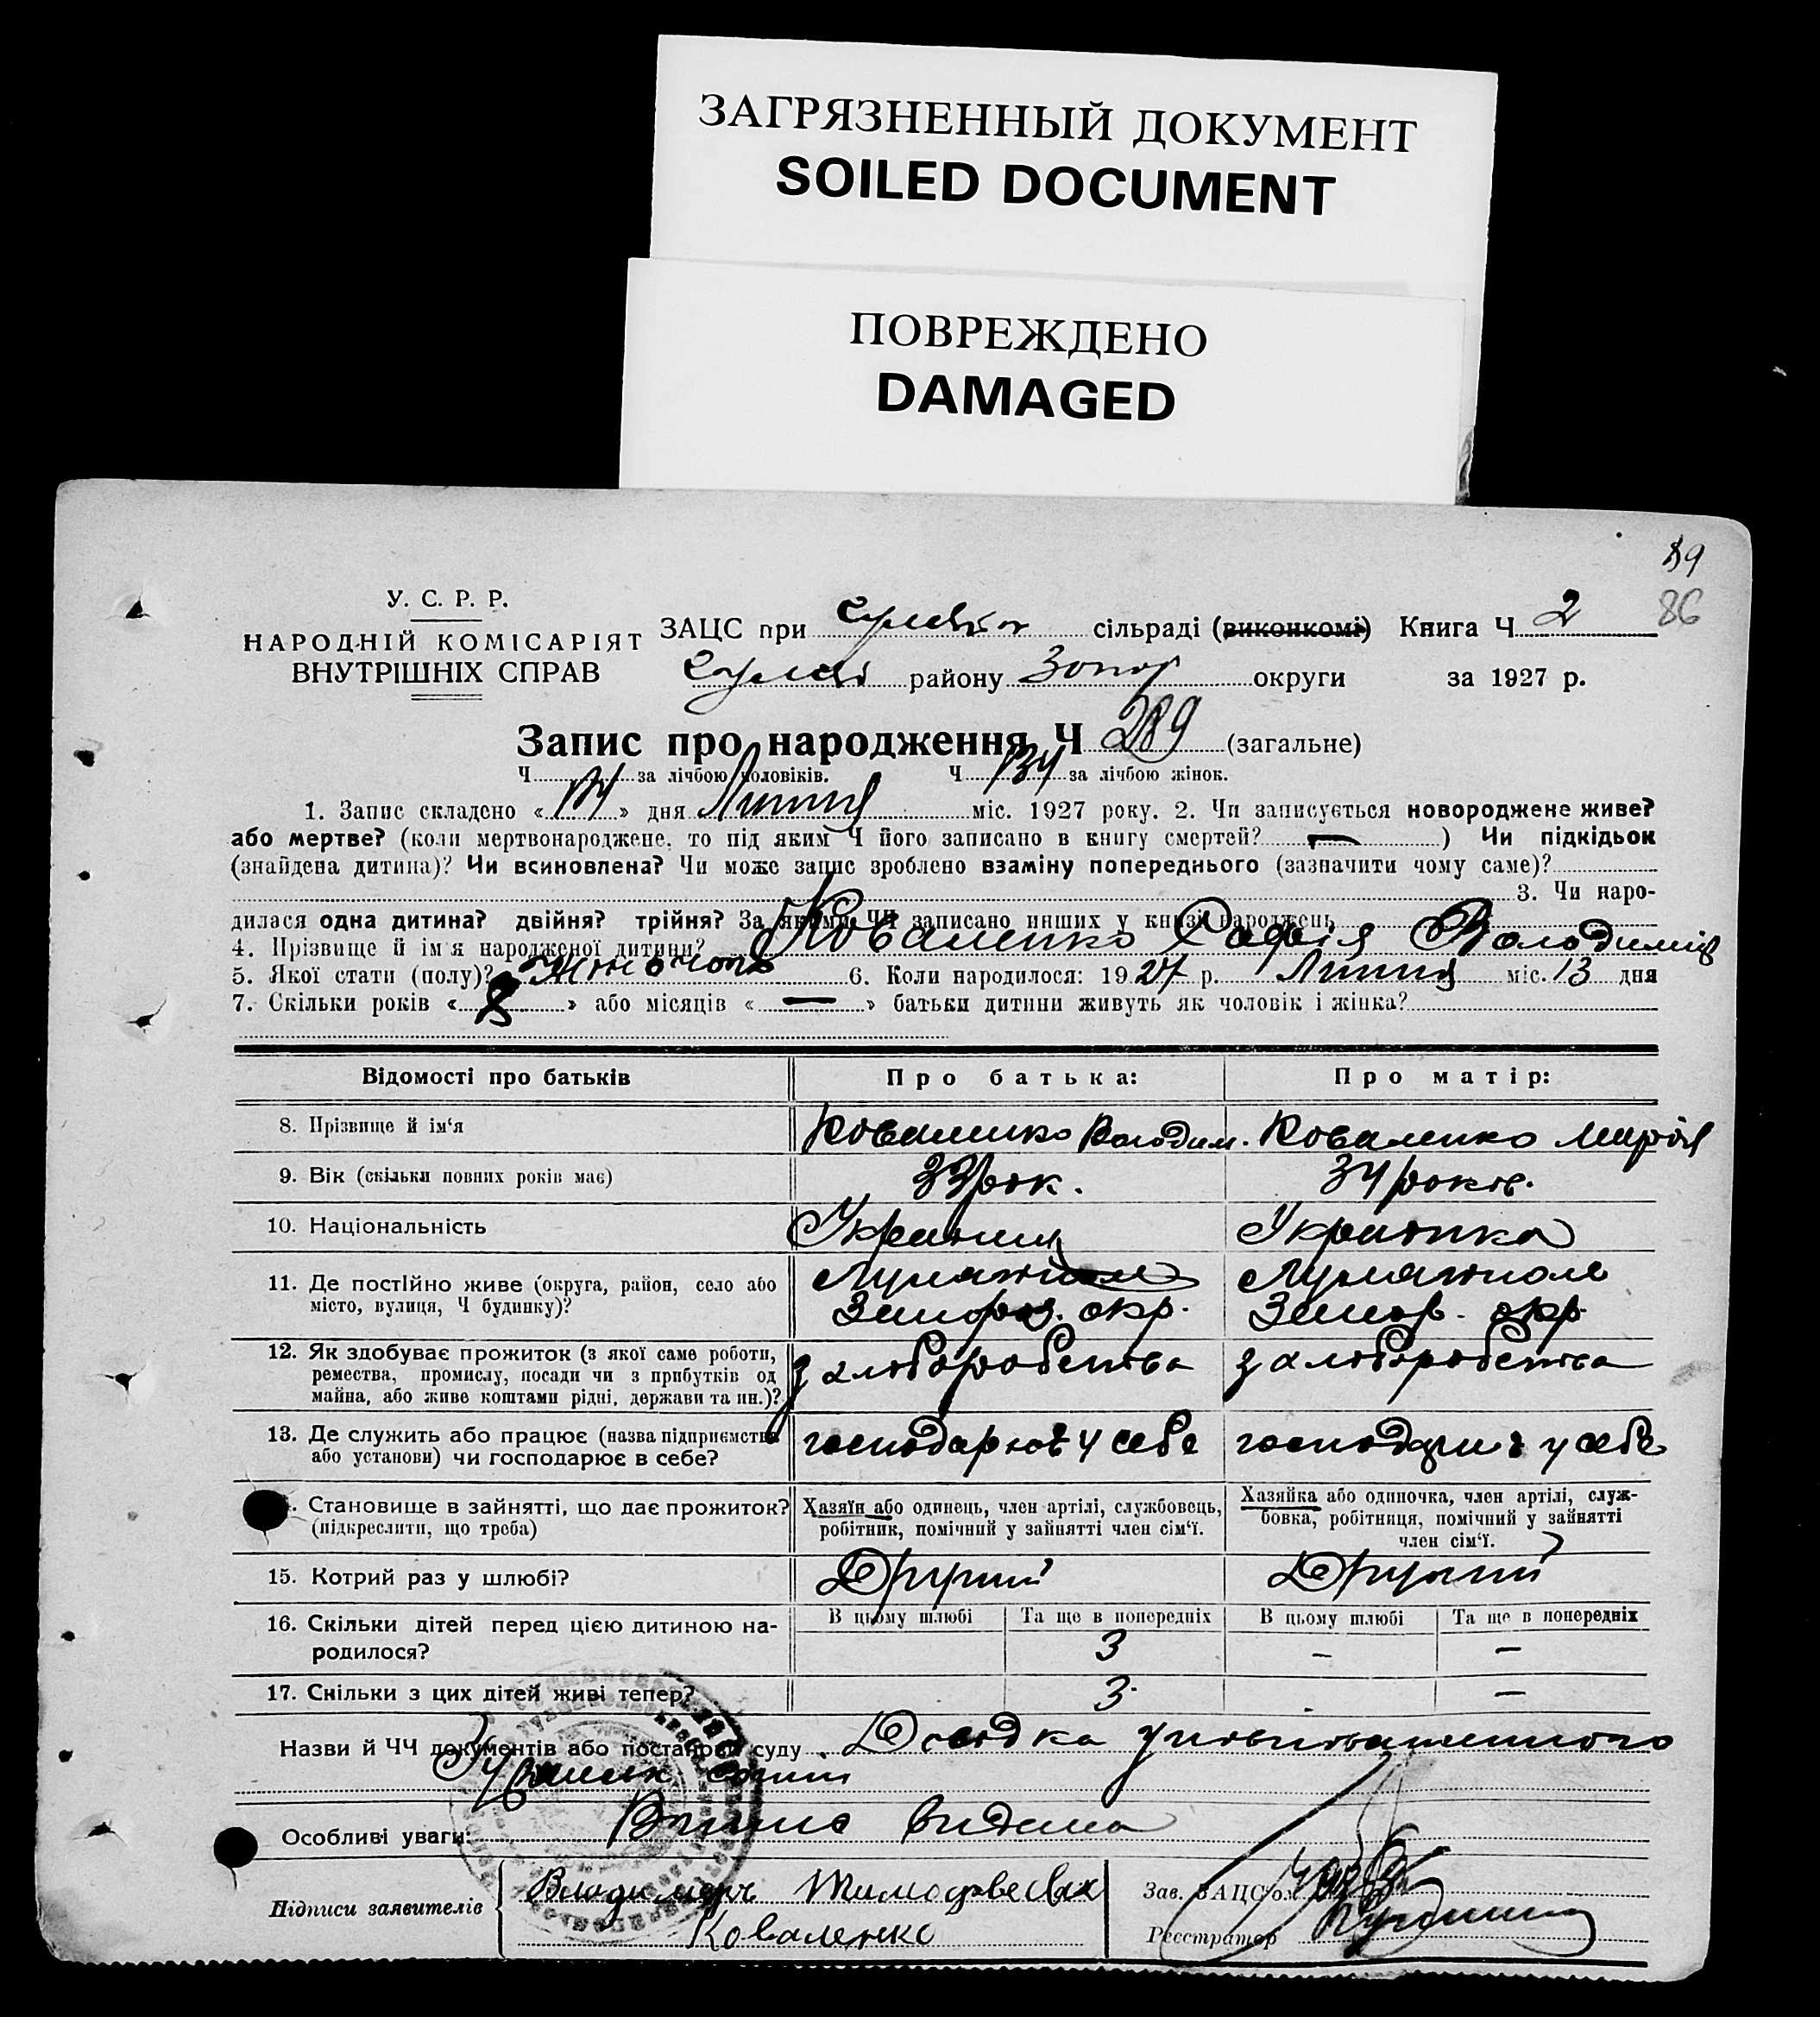 ЗАГРЯЗНЕННЫЙ ДОКУМЕНТ
SOILED DOCUMENT
ПОВРЕЖДЕНО
DAMAGED
89
86
У. С. Р. Р.
НАРОДНІЙ КОМІСАРІЯТ
ВНУТРІШНІХ СПРАВ
ЗАЦС при сільраді (виконкомі) Книга Ч 2
району Запор округи за 1927 р.
Запис про народження Ч 289 (загальне)
Ч за лічбою чоловіків. Ч 134 за лічбою жінок.
1. Запис складено « » дня Липня міс. 1927 року. 2. Чи записується новороджене живе?
або мертве? (коли мертвонароджене, то під яким Ч його записано в книгу смертей? — ) Чи підкідьок
(знайдена дитина)? Чи всиновлена? Чи може запис зроблено взаміну попереднього (зазначити чому саме)?
3. Чи наро-
дилася одна дитина? двійня? трійня? За якими ЧЧ записано инших у книзі народжень
4. Прізвище й ім'я народженої дитини? Коваленко Софія Володимир
5. Якої стати (полу)? Жіночого 6. Коли народилося: 1927 р. Липня міс. 13 дня
7. Скільки років « » або місяців « — » батьки дитини живуть як чоловік і жінка?
Відомості про батьків Про батька: Про матір:
8. Прізвище й ім'я Коваленко Володим. Коваленко Марія
9. Вік (скільки повних років має) 33 рок. 34 років.
10. Національність Українець Українка
11. Де постійно живе (округа, район, село або
місто, вулиця, Ч будинку)?
Запоріз. окр. Запор. окр.
12. Як здобуває прожиток (з якої саме роботи,
ремества, промислу, посади чи з прибутків од
майна, або живе коштами рідні, держави та ин.)?
з хліборобства з хліборобства
13. Де служить або працює (назва підприємства
або установи) чи господарює в себе?
господарює у себе господарює у себе
Становище в зайнятті, що дає прожиток?
(підкреслити, що треба)
Хазяїн або одинець, член артілі, службовець,
робітник, помічний у зайнятті член сім'ї.
Хазяйка або одиночка, член артілі, служ-
бовка, робітниця, помічний у зайнятті
член сім'ї.
15. Котрий раз у шлюбі? Другий Другий
16. Скільки дітей перед цією дитиною на-
родилося?
В цьому шлюбі Та ще в попередніх В цьому шлюбі Та ще в попередніх
3 – –
17. Скільки з цих дітей живі тепер? 3 –
Назви й ЧЧ документів або постанови суду
Особливі уваги: видана
Підписи заявителів
Владимеръ Тимофеевич
Коваленко
Зав. ЗАЦС'ом
Реєстратор